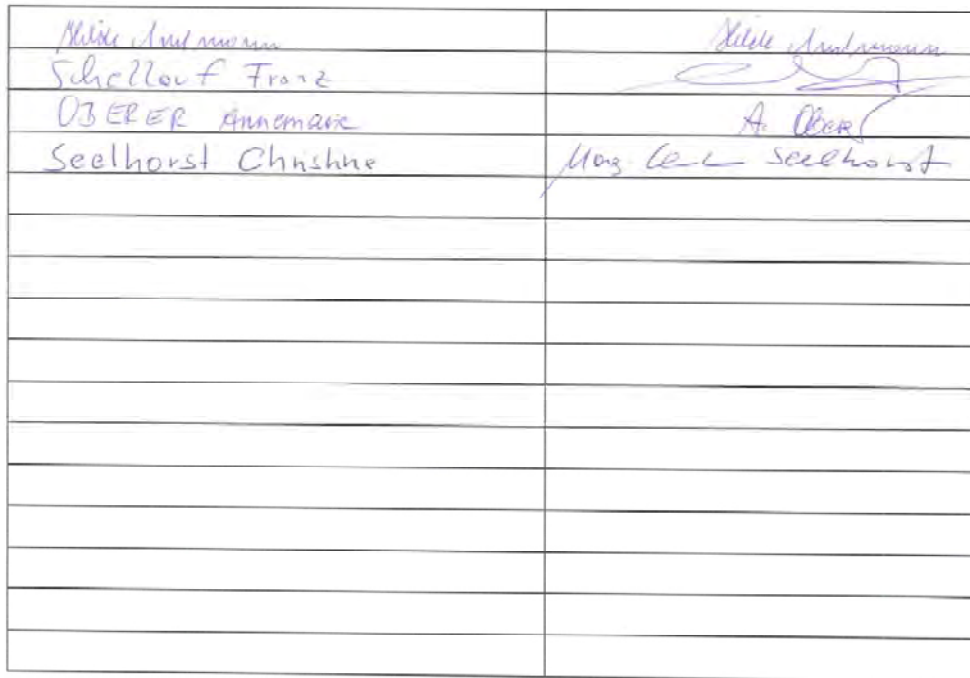 Hilde
Hilde
Schellauf Franz
OBERER Annemarie
A. Oberer
Seelhorst Christine
Mag. Seelhorst